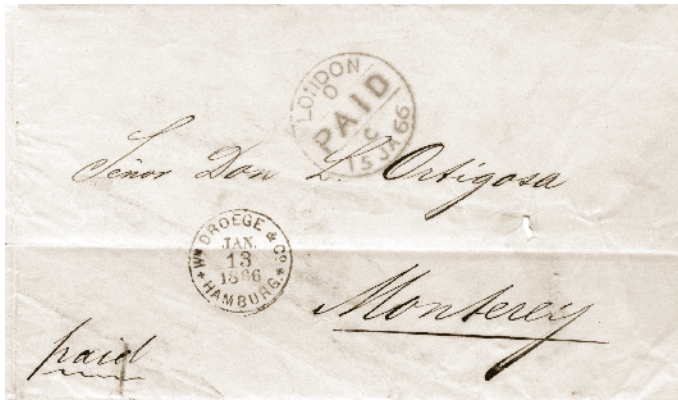 LONDON
O
PAID
C
15 JA 66
Señor Don L. Ortigosa
Wm DROEGE & Co
JAN.
13
1866
* HAMBURG *
Monterey
paid